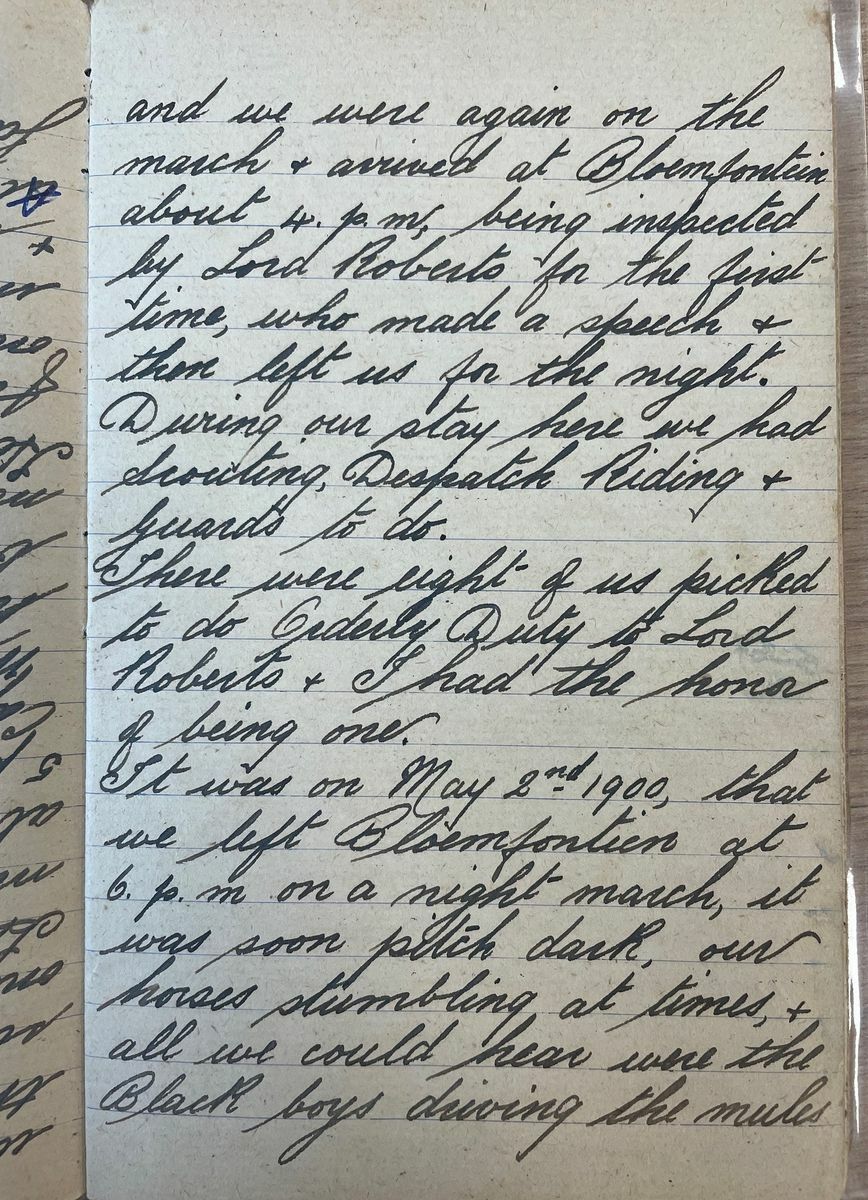 and we were again on the
march + arrived at Bloemfontein
about 4. p.m, being inspected
by Lord Roberts for the first
time, who made a speech +
then left us for the night.
During our stay here we had
Scouting, Despatch Riding +
Guards to do.
There were eight of us picked
to do Orderly Duty to Lord
Roberts + I had the honor
of being one.
It was on May 2nd 1900, that
we left Bloemfontien at
6. p.m on a night march, it
was soon pitch dark, our
horses stumbling at times, +
all we could hear were the
Black boys driving the mules